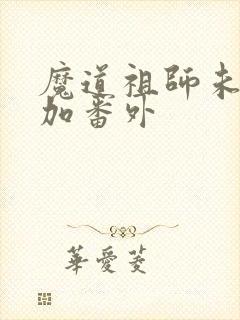 魔道祖師未
加番外
華愛菱